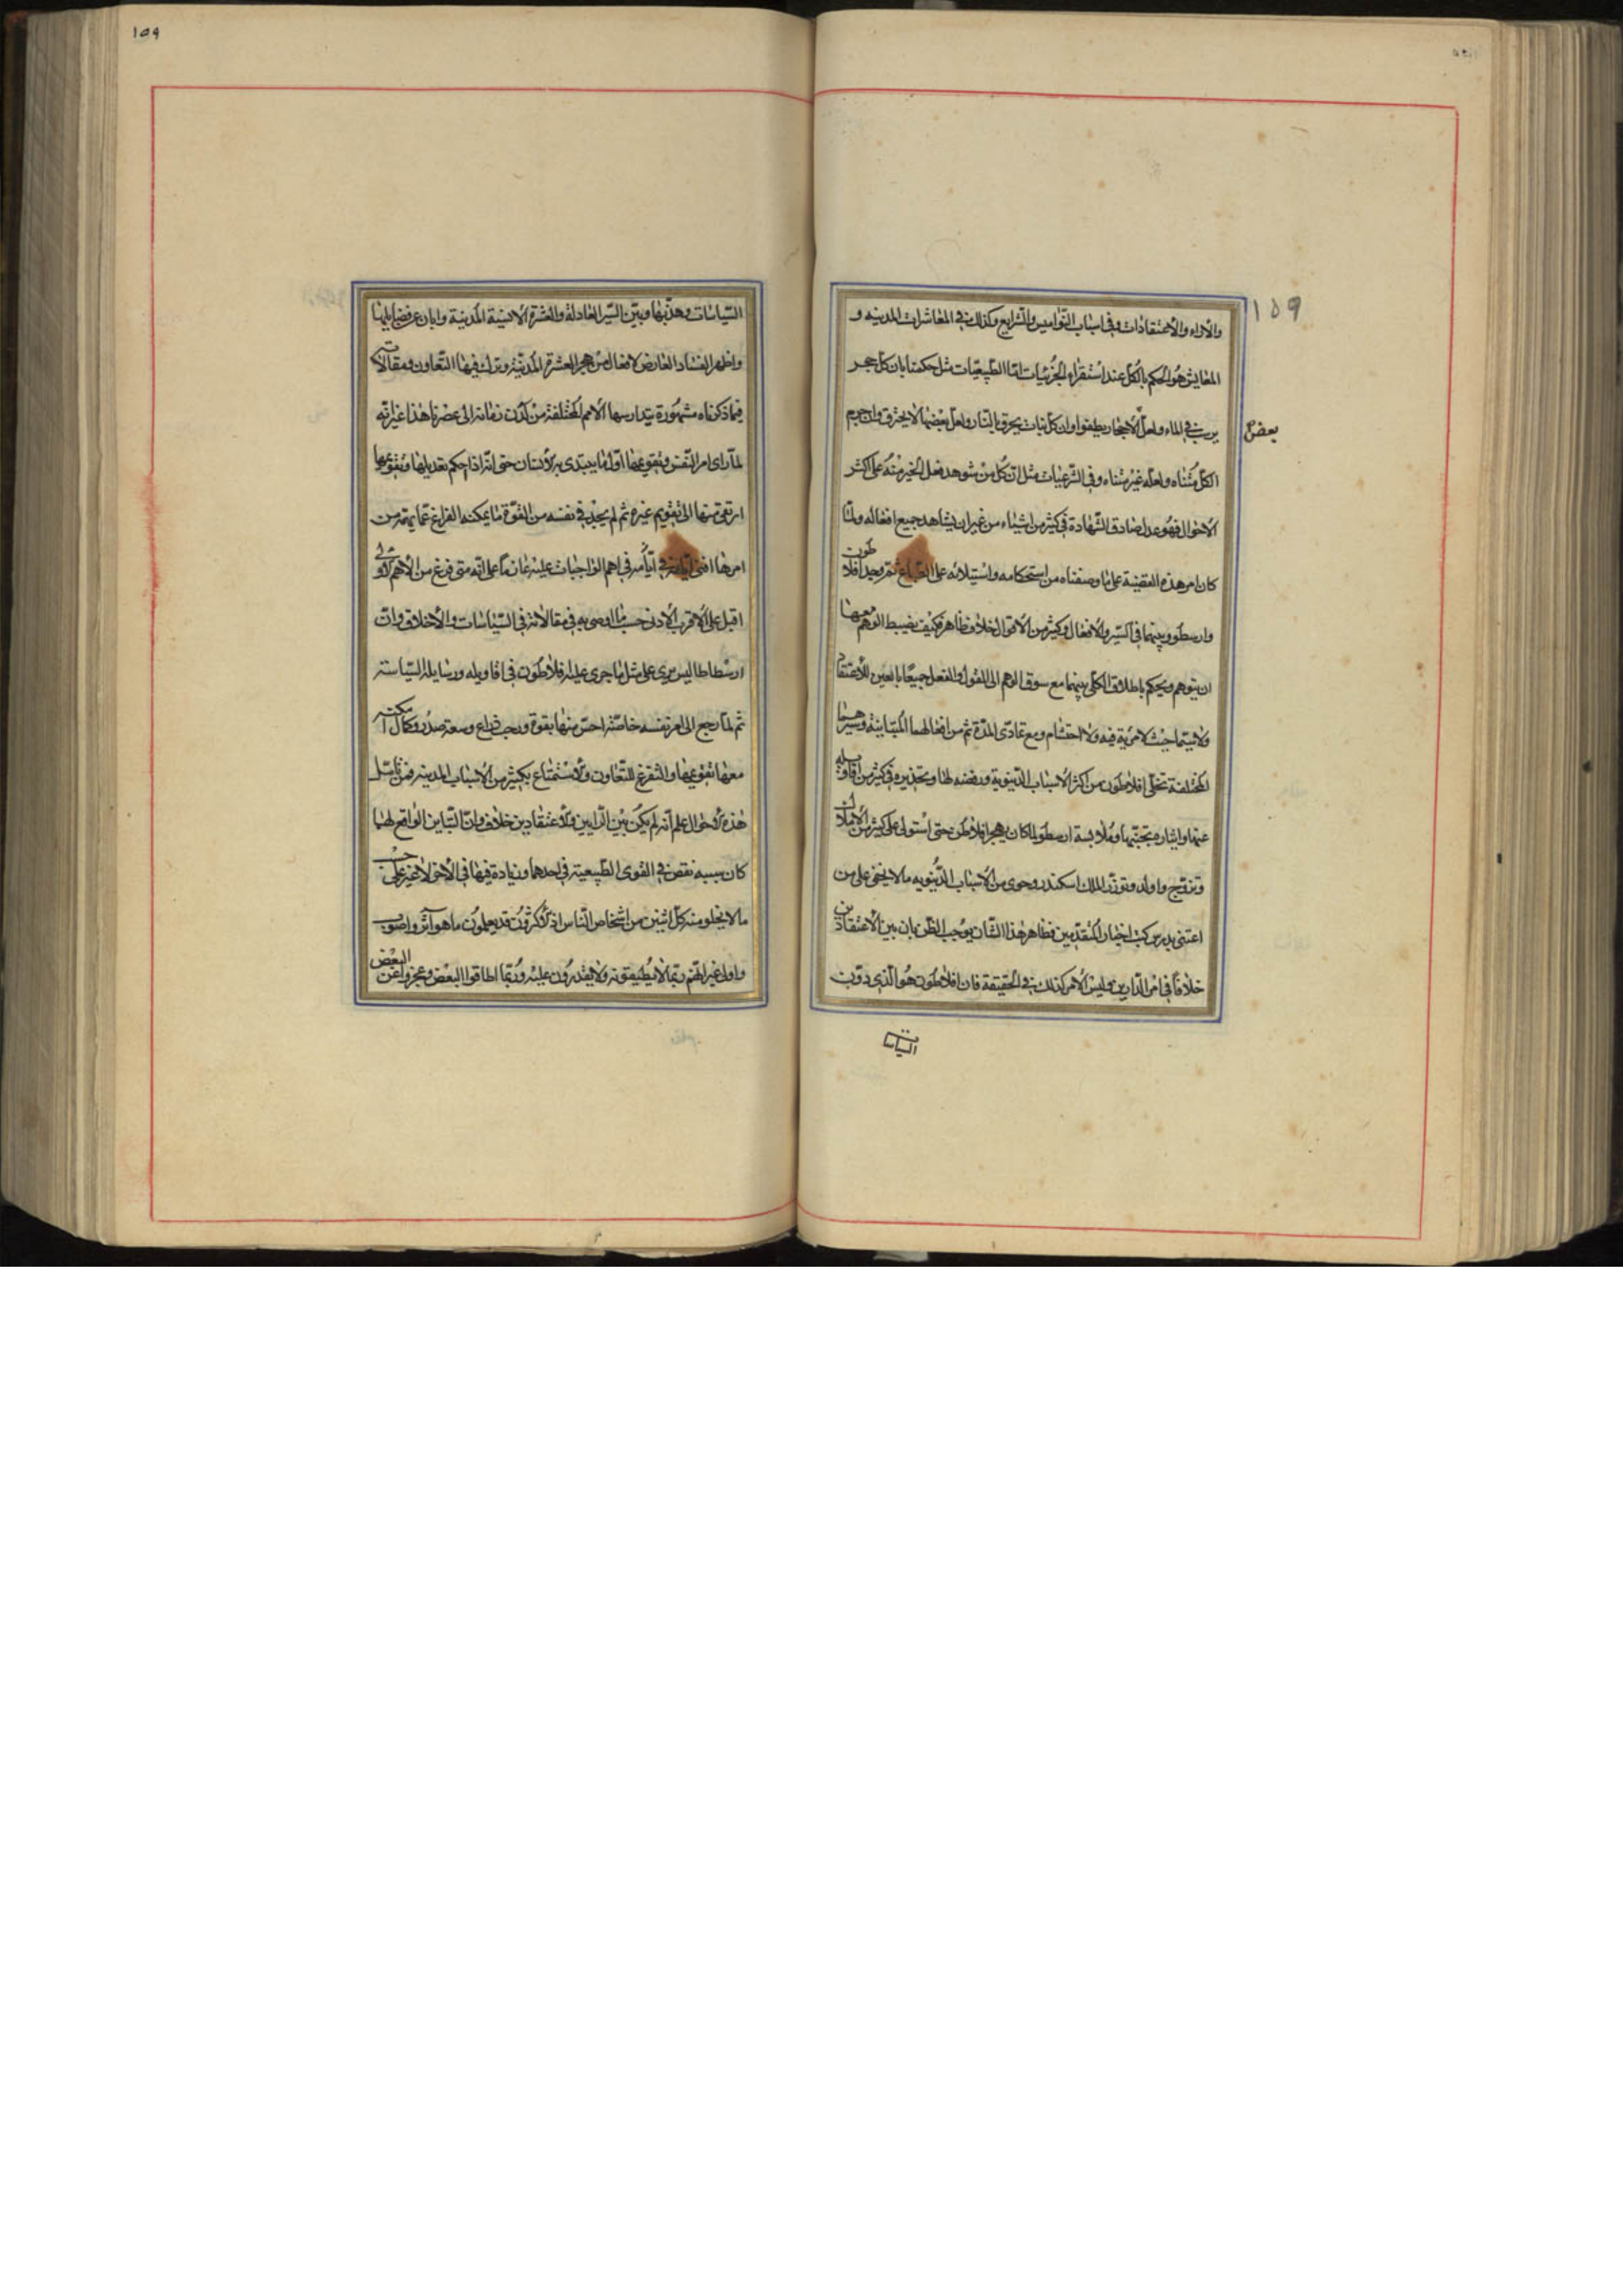 ١٥٩
والآراء والاعتقادات وفى اسباب النواميس والشرايع وكذلك فى المعاشرات المدينه و
المعايش هو الحكم بالكل عند استقراء الجزئيات اما الطبيعيات مثل حكمنا بان كل حجر
يرسب فى الماء ولعل الاحجار يطفوا وان كل نبات يحرق بالنار ولعل بعضها لا يحترق وان جرم
بعض
الكل متناه ولعله غير متناه وفى الشرعيات مثل ان كل من شوهد فعل الخير منه على اكثر
الاحوال فهو عدل صادق الشهادة فى كثير من اشياء من غير ان يشاهد جميع افعاله ولما
كان امر هذه القضية على ما وصفناه من استحكامه واستيلائه على الطباع ثم وجد افلاطون
وارسطو وبينهما فى السير والافعال وكثير من الاقوال خلاف ظاهر فكيف يضبط الوهم معهما
ان يتوهم ويحكم باطلاق الكلى بينهما مع سوق الوهم الى القول والفعل جميعا تابعين للاعتقاد
ولا سيما حيث لا مرية فيه ولا احتشام ومع تمادى المدة ثم من افعالهما المتباينة وسيرهما
المختلفة تخلى افلاطون من اكثر الاسباب الدنيوية ورفضه لها وتحذيره فى كثير من اقاويله
عنها وايثاره تجنبها وملابسة ارسطو لما كان يهجر افلاطون حتى استولى على كثير من الاملاك
وتزوج واولد وتوزر للملك اسكندر وحوى من الاسباب الدنيويه ما لا يخفى على من
اعتنى بدرس كتب اخبار المتقدمين فظاهر هذا الشان يوجب الظن بان بين الاعتقادين
خلافا فى امر الدارين وليس الامر كذلك فى الحقيقة فان افلاطون هو الذى دون
السياسات
١٥٩
السياسات وهذبها وبين السير العادلة والعشرة الانسية المدنية وابان عن فضايلها
واظهر الفساد العارض لافعال من هجر العشرة المدنية وترك فيها التعاون ومقالاته
فيما ذكرناه مشهورة يتدارسها الامم المختلفة من لدن زمانه الى عصرنا هذا غير انه
لما راى امر النفس وتقويمها اول ما يبتدى به الانسان حتى انه اذا احكم تعديلها وتقويمها
ارتقى منها الى تقويم غيره ثم لم يجد فى نفسه من القوة ما يمكنه الفراغ عما يهمه من
امرها افنى ايامه فى اهم الواجبات عليه عازما على انه متى فرغ من الاهم الاولى
اقبل على الاقرب الادنى حسب ما اوصى به فى مقالاته فى السياسات والاخلاق وان
ارسطاطاليس جرى على مثل ما جرى عليه افلاطون فى اقاويله ورسايله السياسته
ثم لما رجع الى امر نفسه خاصة احس منها بقوة ورحب ذراع وسعة صدر وكمال امكنه
معها تقويمها والتفرغ للتعاون والاستمتاع بكثير من الاسباب المدينه فمن تامل
هذه الاحوال علم انه لم يكن بين الرايين والاعتقادين خلاف وان التباين الواقع لهما
كان سببه نقص فى القوى الطبيعية فى احدهما وزيادة فيها فى الاخر لا غير على حسب
ما لا يخلو منه كل اثنين من اشخاص الناس اذ الاكثرون قد يعلمون ما هو آثر واصوب
واولى غير انهم ربما لا يطيقونه ولا يقدرون عليه وربما اطاقوا البعض وعجزوا عن البعض